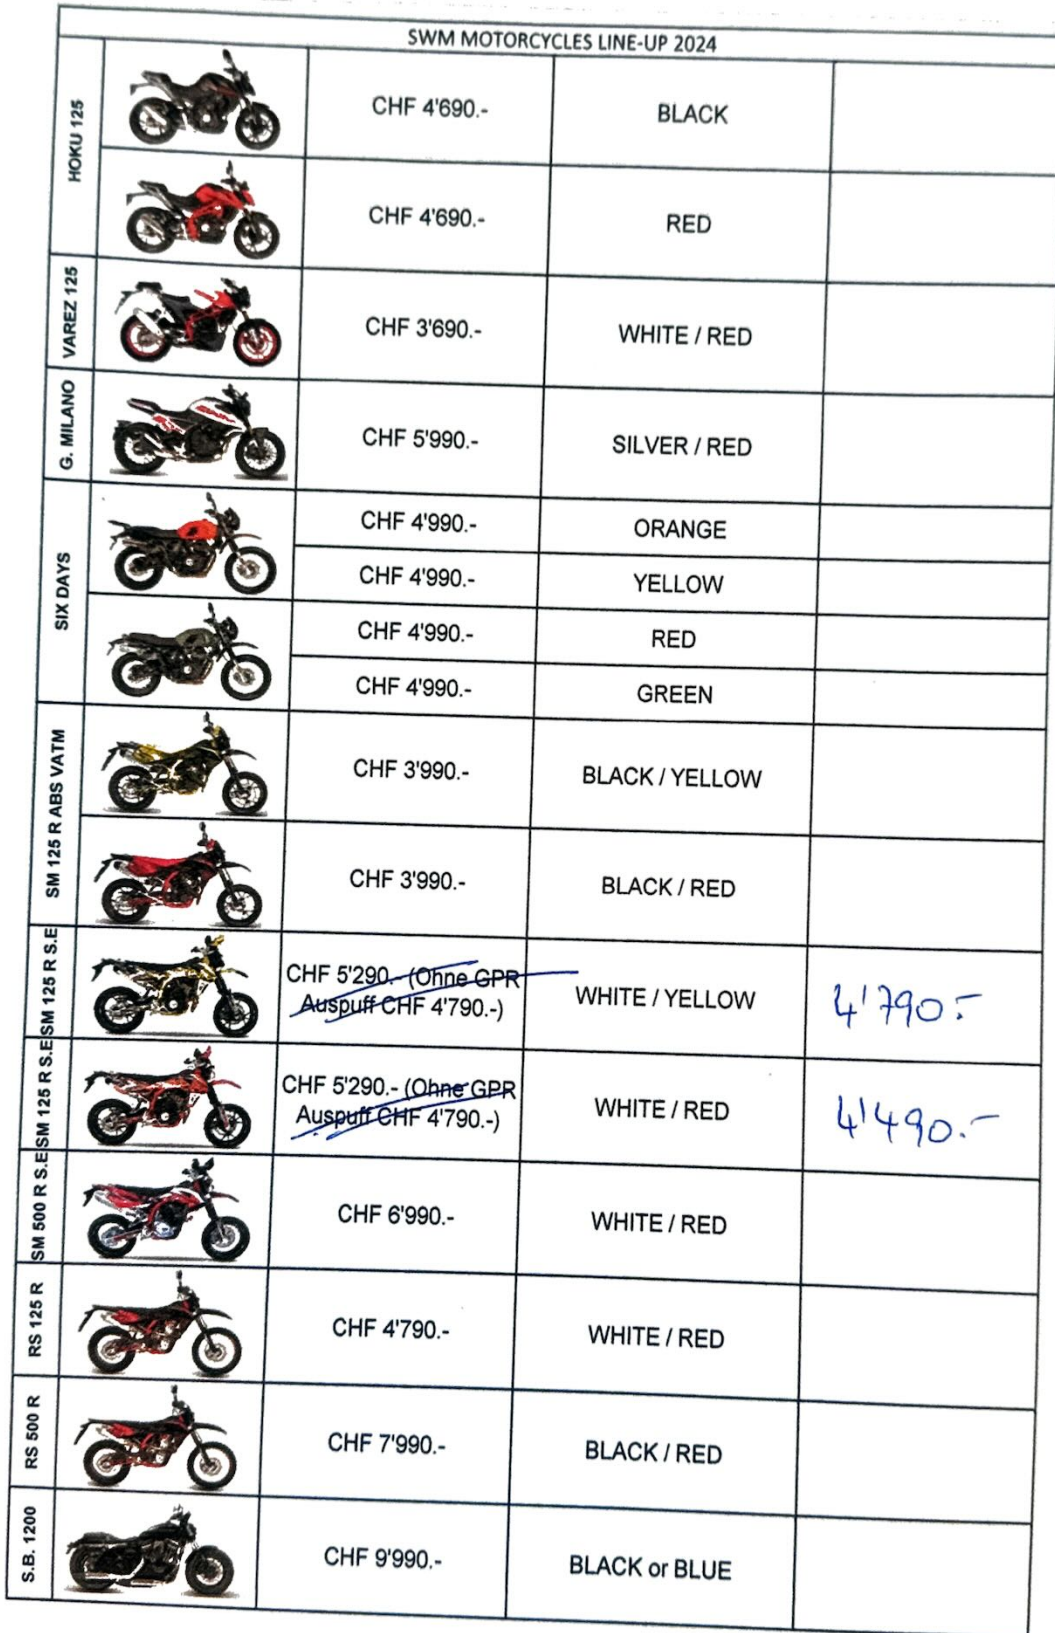 SWM MOTORCYCLES LINE-UP 2024
HOKU 125
CHF 4'690.- BLACK
CHF 4'690.- RED
VAREZ 125
CHF 3'690.- WHITE / RED
G. MILANO
CHF 5'990.- SILVER / RED
SIX DAYS
CHF 4'990.- ORANGE
CHF 4'990.- YELLOW
CHF 4'990.- RED
CHF 4'990.- GREEN
SM 125 R ABS VATM
CHF 3'990.- BLACK / YELLOW
CHF 3'990.- BLACK / RED
SM 125 R S.E
CHF 5'290.- (Ohne GPR
Auspuff CHF 4'790.-)
WHITE / YELLOW
4'790.-
SM 125 R S.E
CHF 5'290.- (Ohne GPR
Auspuff CHF 4'790.-)
WHITE / RED
4'490.-
SM 500 R S.E
CHF 6'990.- WHITE / RED
RS 125 R
CHF 4'790.- WHITE / RED
RS 500 R
CHF 7'990.- BLACK / RED
S.B. 1200
CHF 9'990.- BLACK or BLUE